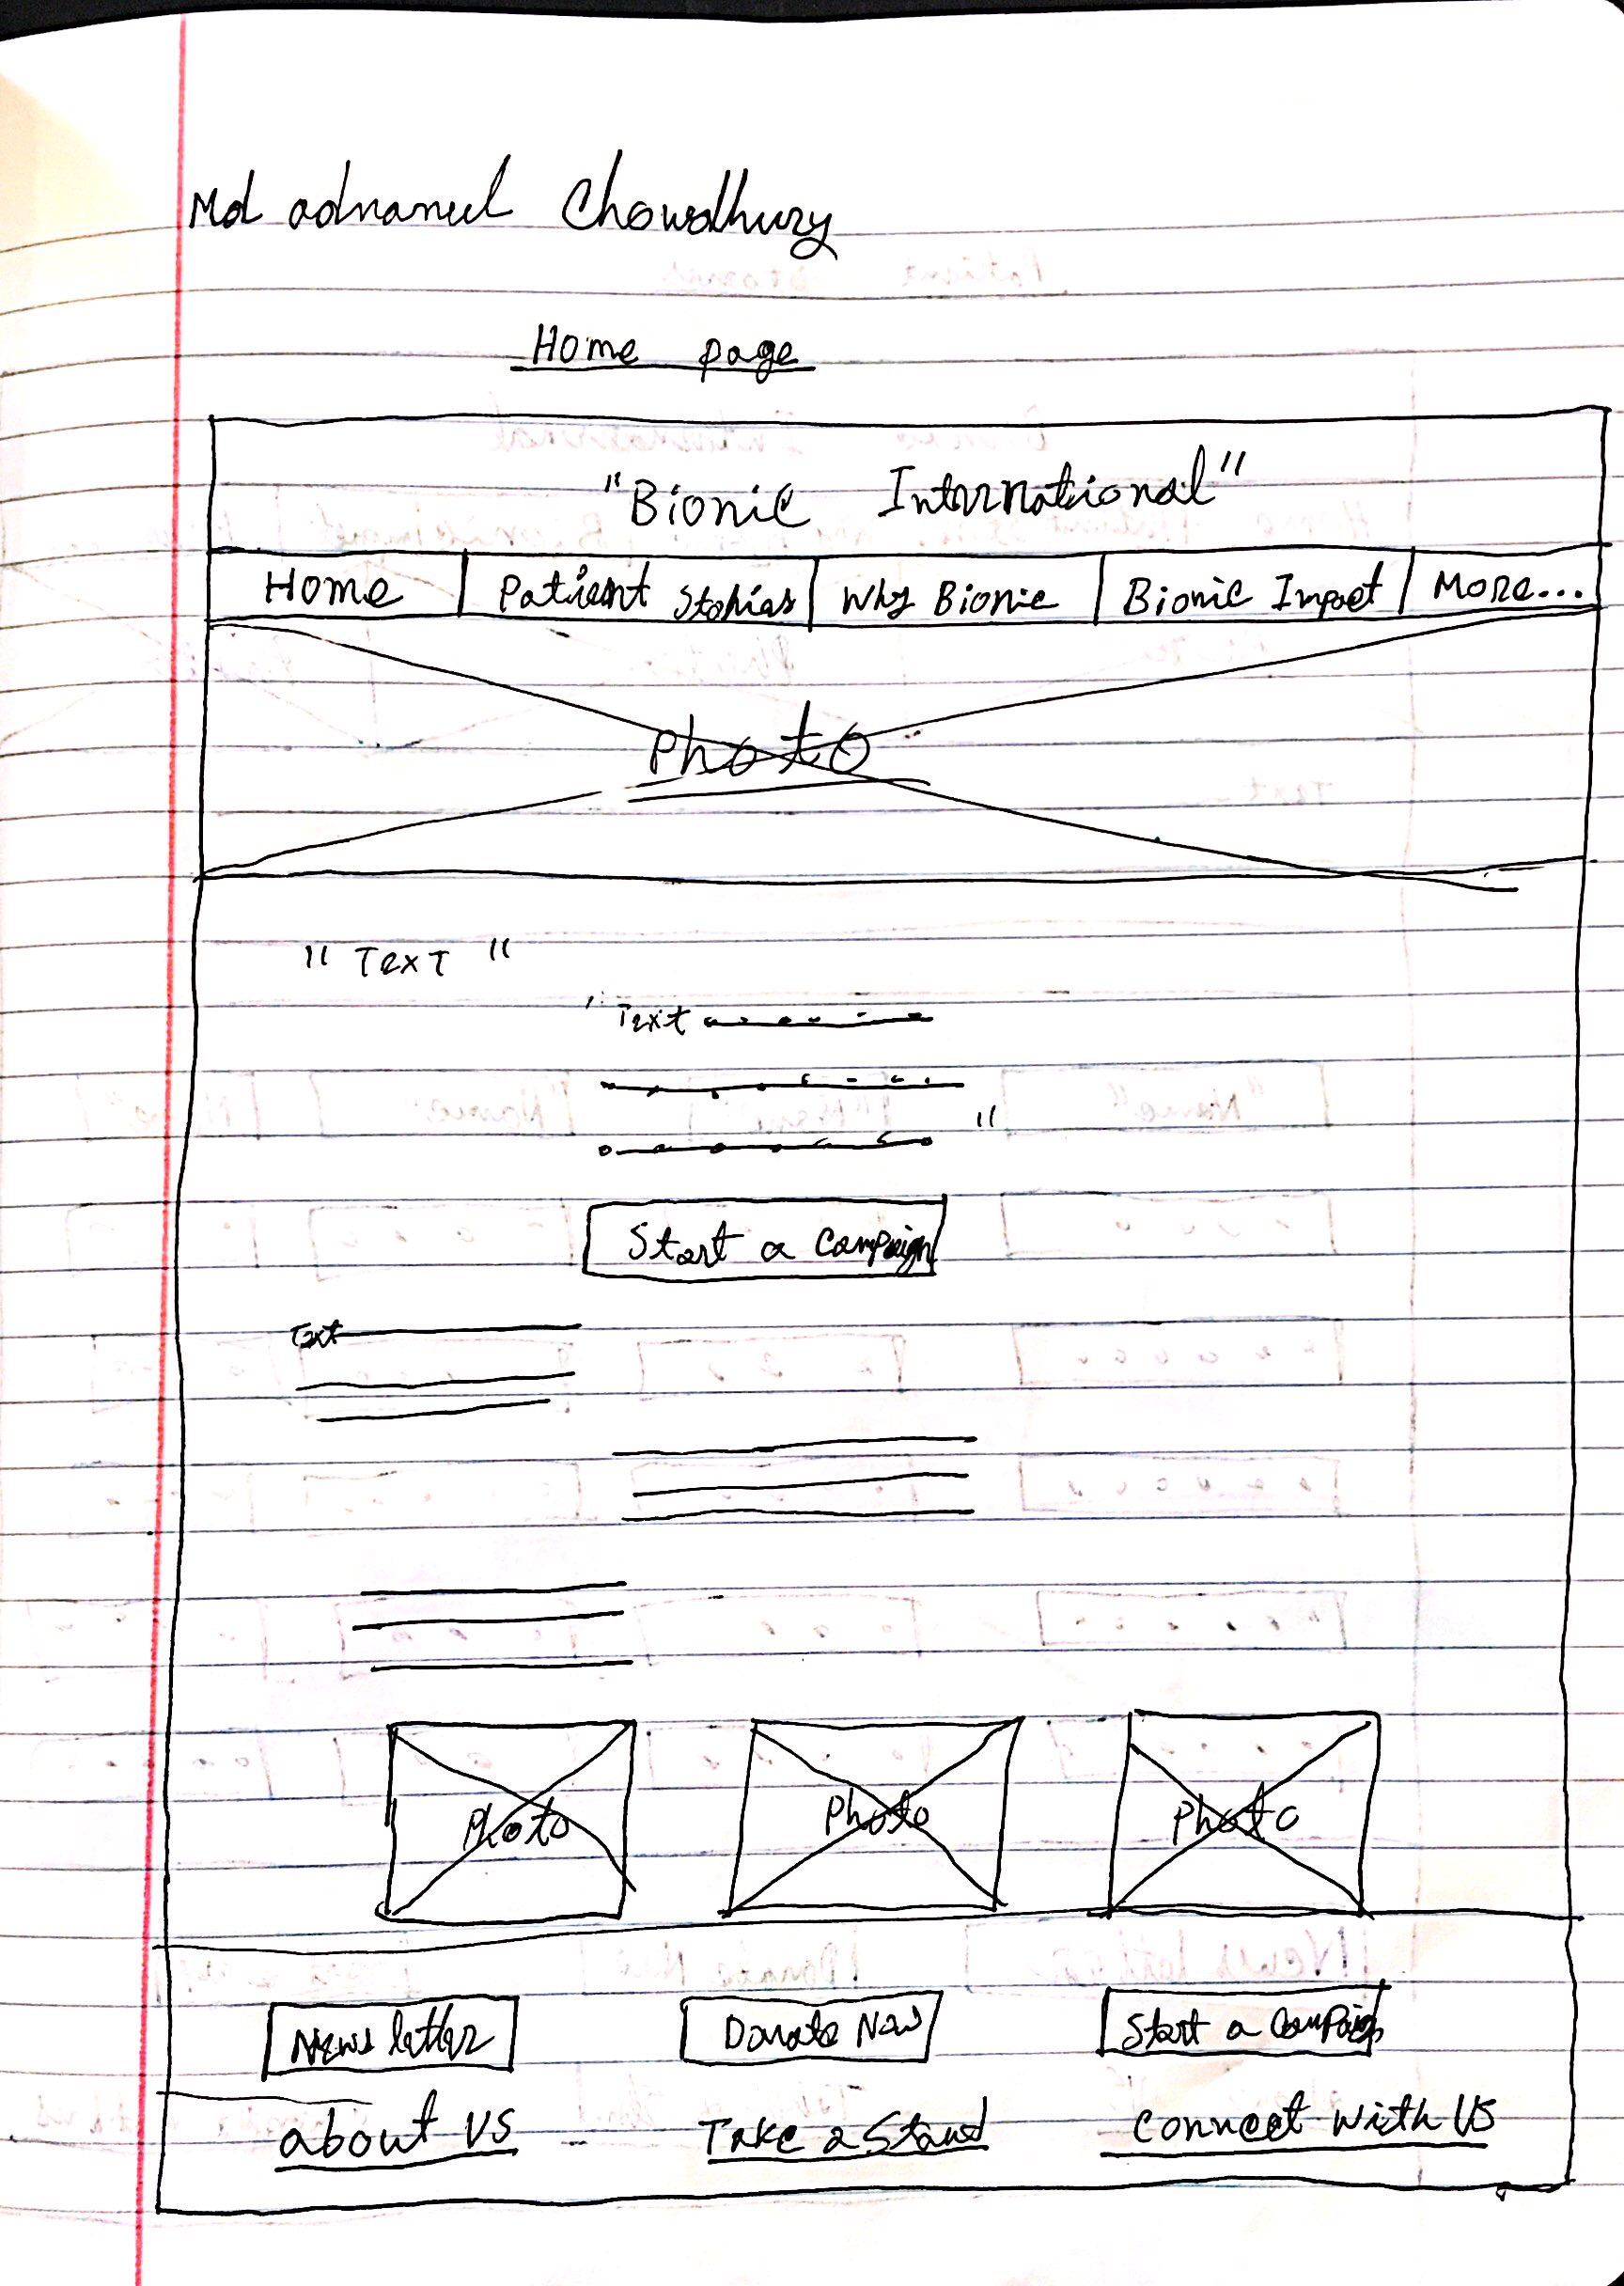 Md adnanul Chowdhury
Home page
"Bionic International"
Home | Patient Stories | Why Bionic | Bionic Impact | More...
Photo
" Text "
" Text
"
Start a Campaign
Text
Photo Photo Photo
News letter Donate Now Start a Campaign
about US Take a Stand Connect With US